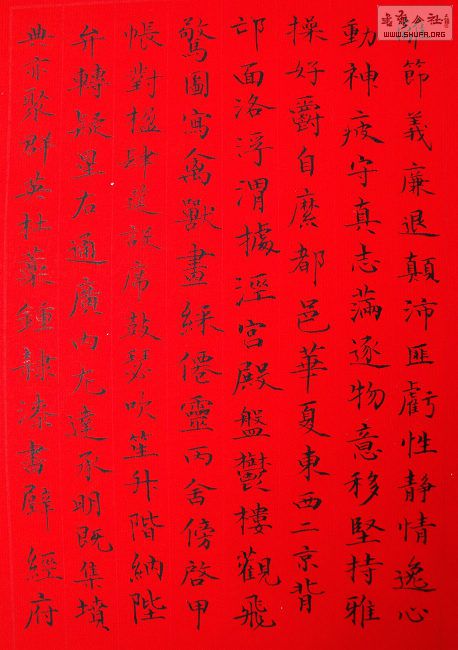 書藝公社
WWW.SHUFA.ORG
節義廉退顛沛匪虧性静情逸心
動神疲守真志滿逐物意移堅持雅
操好爵自縻都邑華夏東西二京背
邙面洛浮渭據涇宮殿盤鬱樓觀飛
驚圖寫禽獸畫綵僊靈丙舍傍啓甲
帳對楹肆筵設席鼓瑟吹笙升階納陛
弁轉疑星右通廣内左達承明既集墳
典亦聚群英杜稾鍾隸漆書壁經府